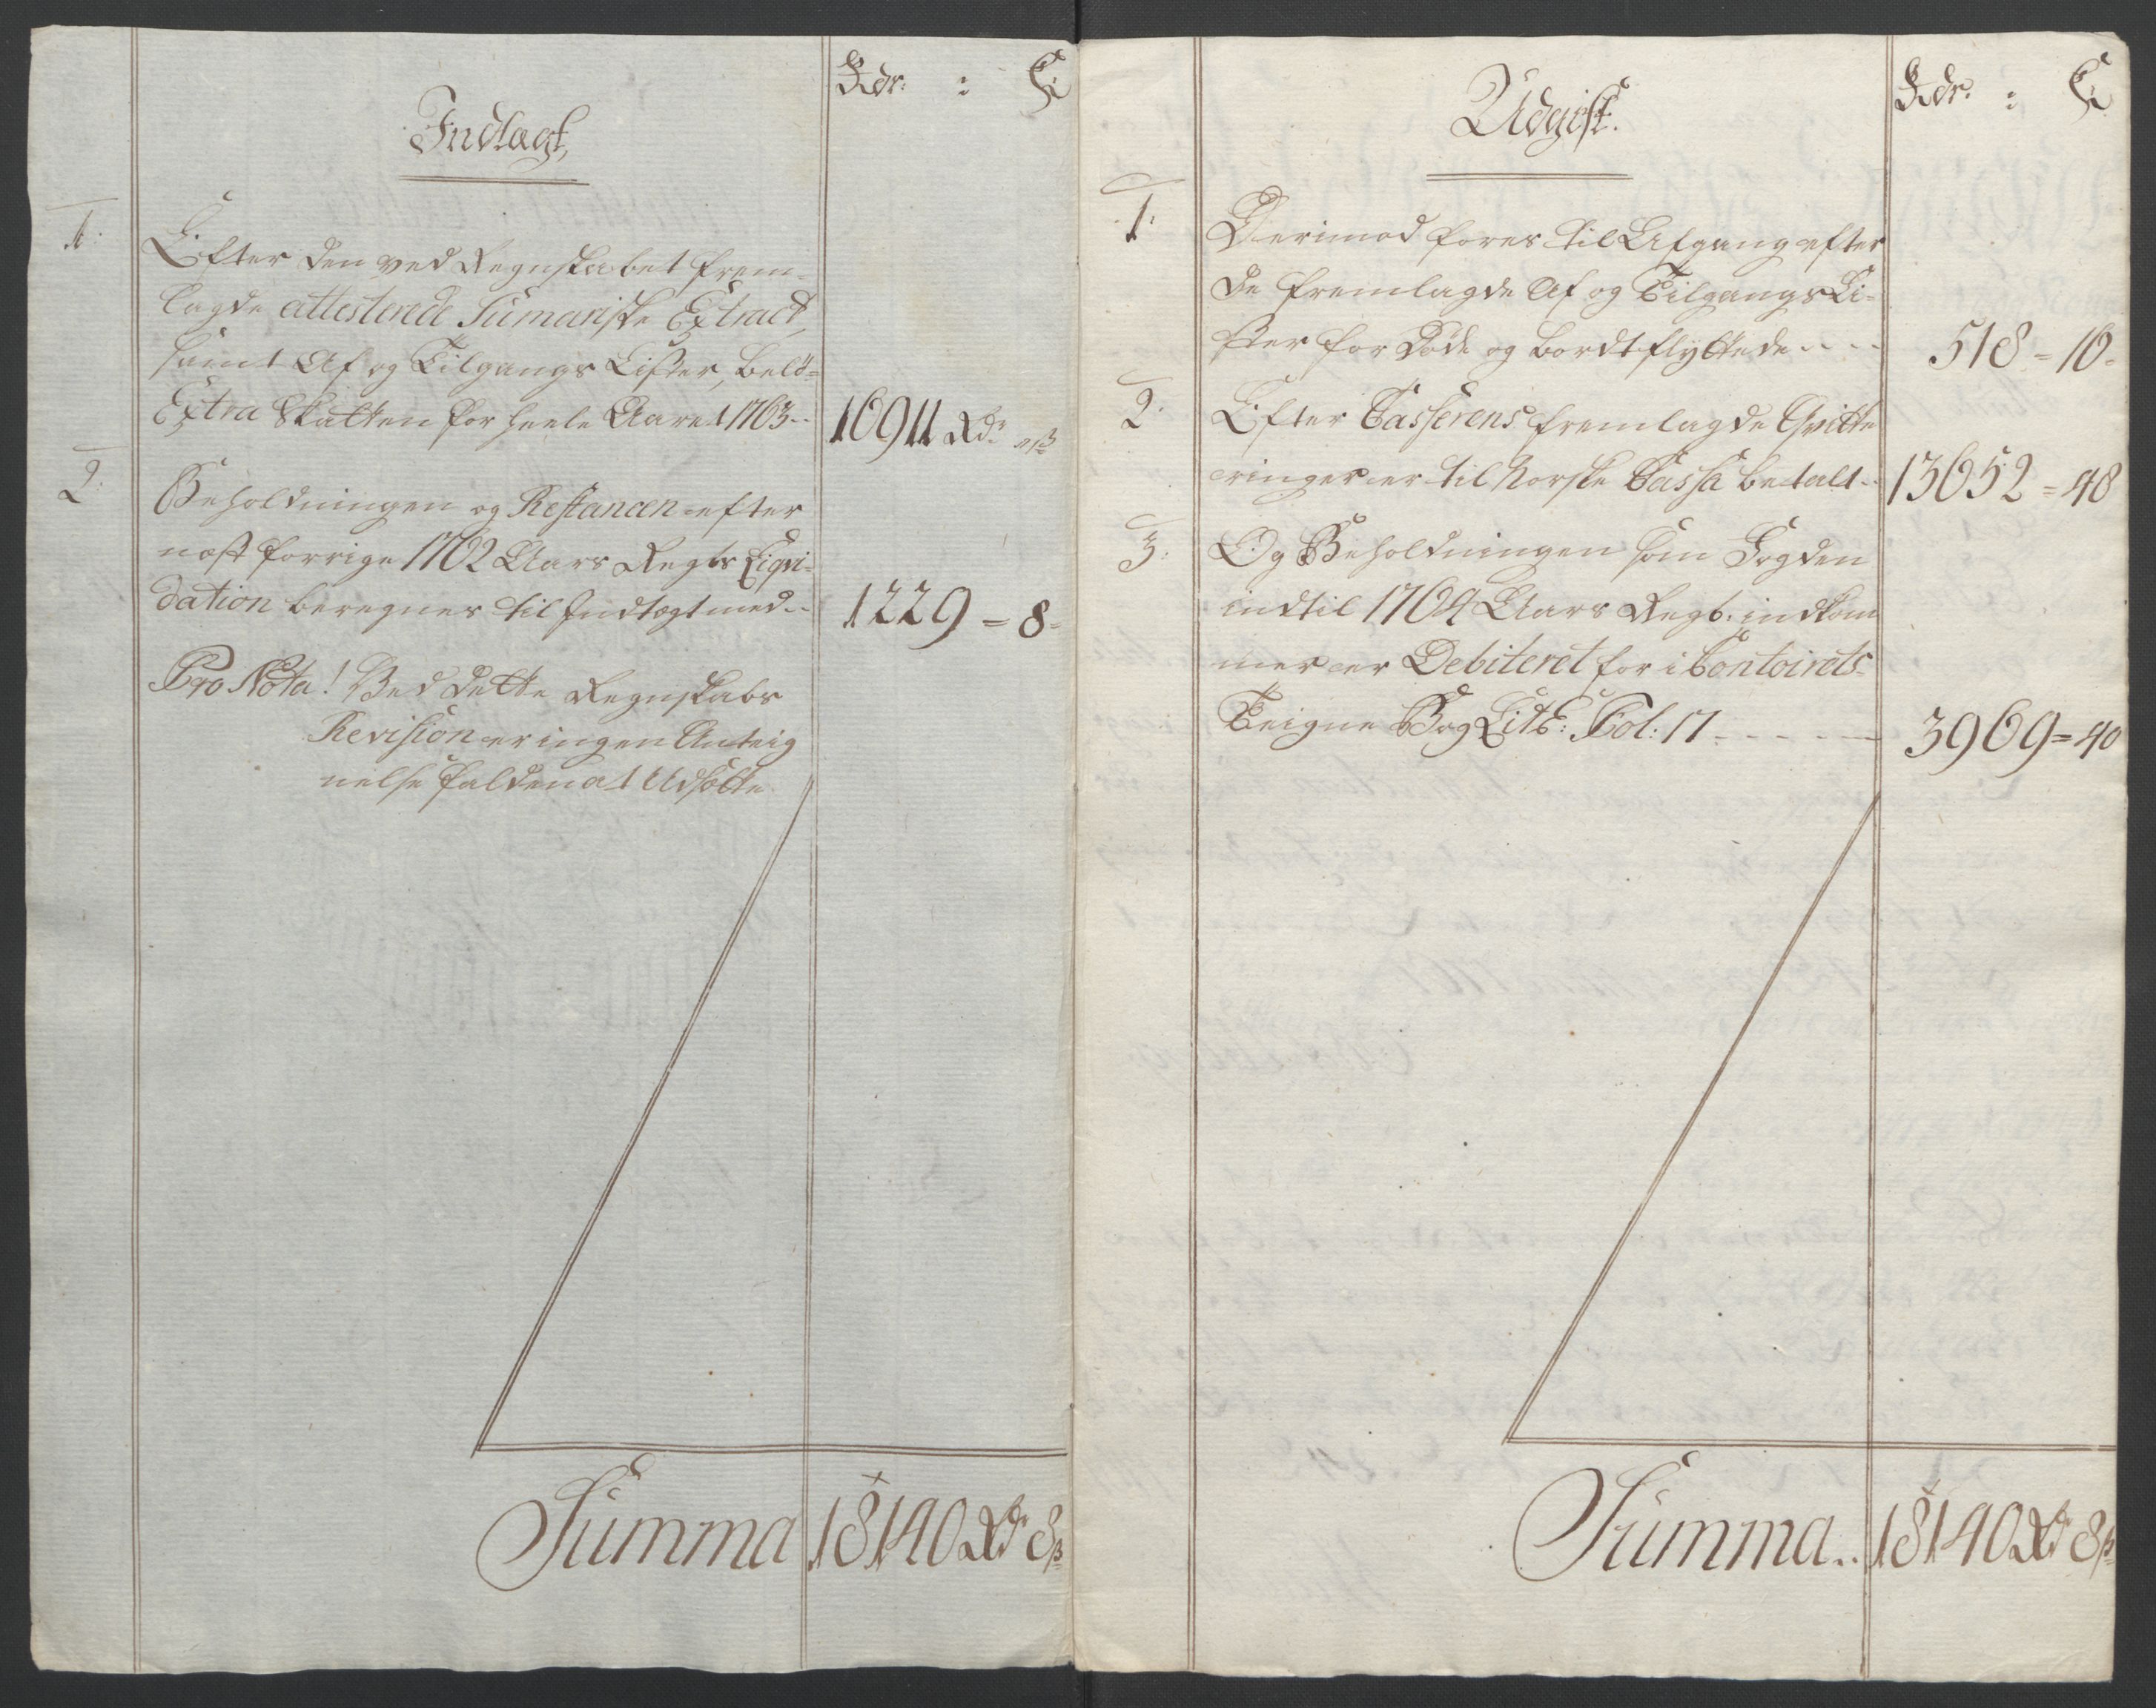 Rdr. : ß
Indtægt,
1. Efter den ved Regnskabet frem-
lagde attesterede Sumariske Extract,
samt Af og Tilgangs Lister, belø-
Extra Skatten for heele Aaret 1763.. 16911 Rdr "ß
2. Beholdningen og Restancen efter
næst forrige 1762 Aars Regbs Liqvi-
dation beregnes til Indtægt med.. 1229 = 8 =
Pro Nota! Ved dette Regnskabs
Revision er ingen Anteig
nelse falden at Udsætte
Summa 18140 Rdr 8 ß
Rdr. : ß
Udgift.
1. Derimod føres til Afgang efter
de fremlagde Af og Tilgangs Li-
ster for døde og bortflyttede.... 518 = 16 =
2. Efter Casserens fremlagde Qvitte
ringer er til Norske Cassa betalt.. 13652 = 48
3. Og Beholdningen som Fogden
indtil 1764 Aars Regb. indkom
mer er Debiteret for i Contoirets
Teigne Bog Lit E: Fol: 17 ..... 3969 = 40
Summa.. 18140 Rdr 8 ß